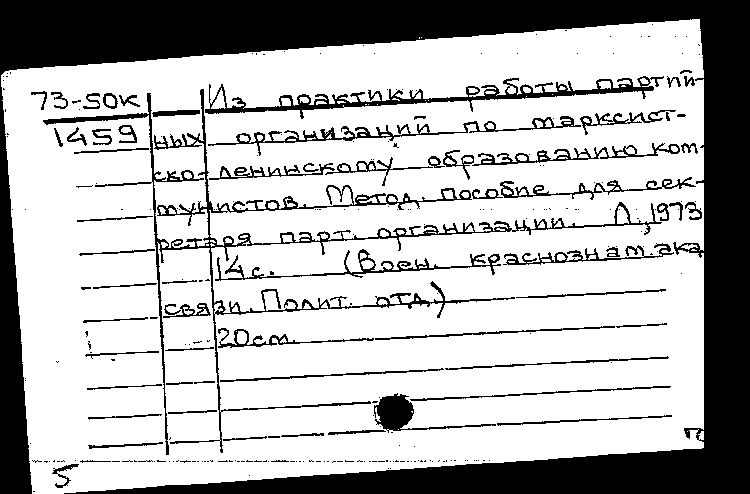 73-50к Из практики работы партий-
1459 ных организаций по марксист-
ско-ленинскому образованию ком-
мунистов. Метод. пособие для сек-
ретаря парт. организации. Л., 1973
14 с. (Воен. краснознам. ака
связи. Полит. отд.)
20 см.
5 п